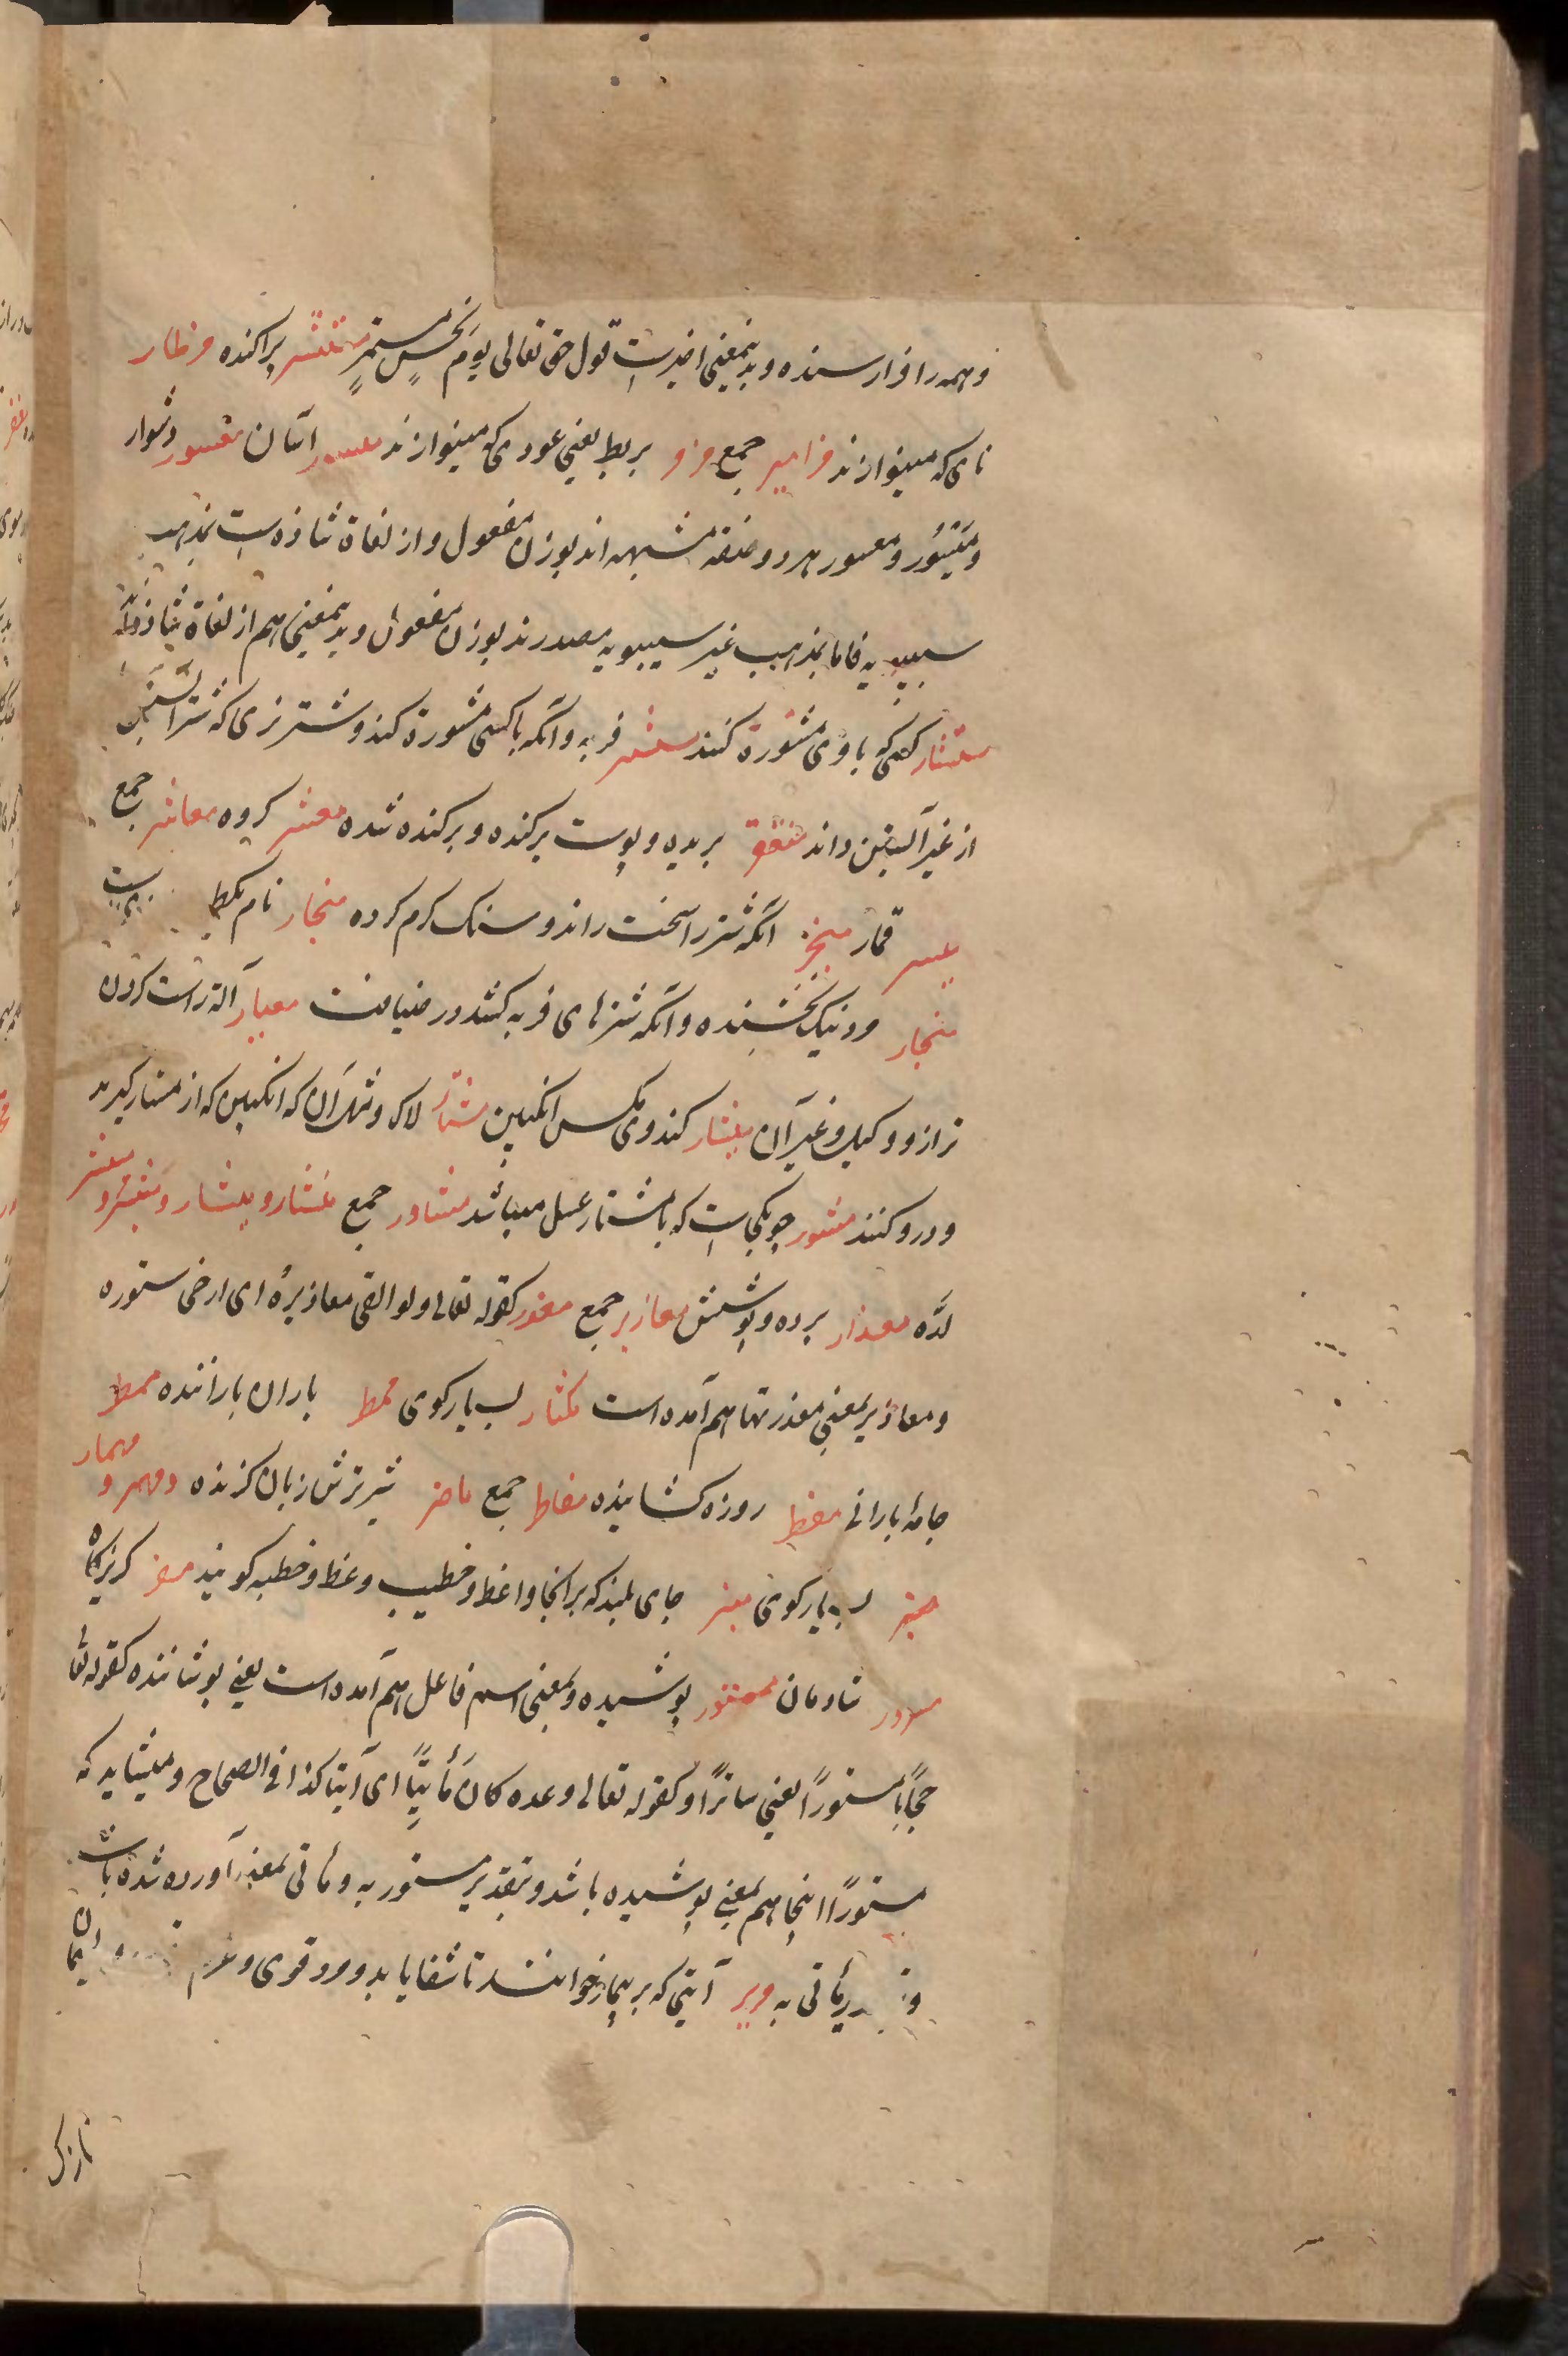 و همه را فرارسنده و بدینمعنی اخیرست قول حق تعالی یوم نحس مستمر منتشر پراکنده مزمار
نای که مینوازند مزامیر جمع مزهر بربط یعنی عودی که مینوازند میسر آسان معسور دشوار
و میسور و معسور هر دو صفة مشبهه اند بوزن مفعول و از لغاة شاذه است بمذهب
سیبویه فاما بمذهب غیر سیبویه مصدرند بوزن مفعول و بدینمعنی هم از لغاة شاذه
مستشار کسی که باوی مشورة کنند مستشیر فربه و آنکه با کسی مشورة کند و شتر نری که شتر آبستن
از غیر آبستن داند بریده و پوست برکنده و برکنده شده معشر کروه معاشر جمع
میسر قمار آنکه شتر را سخت راند و سنک کرم کرده منجار نام
منحار مرد نیک بخشنده و آنکه شترهای فربه کشد در ضیافت معیار آلة راست کردن
ترازو و کیل و غیر آن کندوی مکس انکبین مشتار لاک و مثل آن که انکبین که از مشتار کیرند
و درو کنند مشور چوبکی است که با مشتار عسل میباشد مشاور جمع منشار و میشار و
ارّه معذار پرده و پوشش معاذیر جمع معذر کقوله تعالی ولو القی معاذیره ای ارخی ستوره
و معاذیر بمعنی معذرتها هم آمده است مکثار بسیار کوی ممطر باران باراننده ممطر
جامهٔ بارانی مفطر روزه کشاینده مفاطر جمع ماضر شیر ترش زبان کزنده و مهمر و مهمار
بسیار کوی منبر جای بلند که بر آنجا واعظ و خطیب وعظ و خطبه کویند مفر کریزکاه
مسرور شادمان مستور پوشیده و بمعنی اسم فاعل هم آمده است یعنی پوشاننده کقوله تعا
حجابا مستورا یعنی ساترا و کقوله تعالی وعده کان مأتیا ای آتیا کذا فی الصحاح و میشاید که
مستورا اینجا هم بمعنی پوشیده باشد و بتقدیر مستور به و مأتی بمعنی آورده شده باشد
مأتی به آیتی که بر بیمار خوانند تا شفا یابد و مرد قوی و